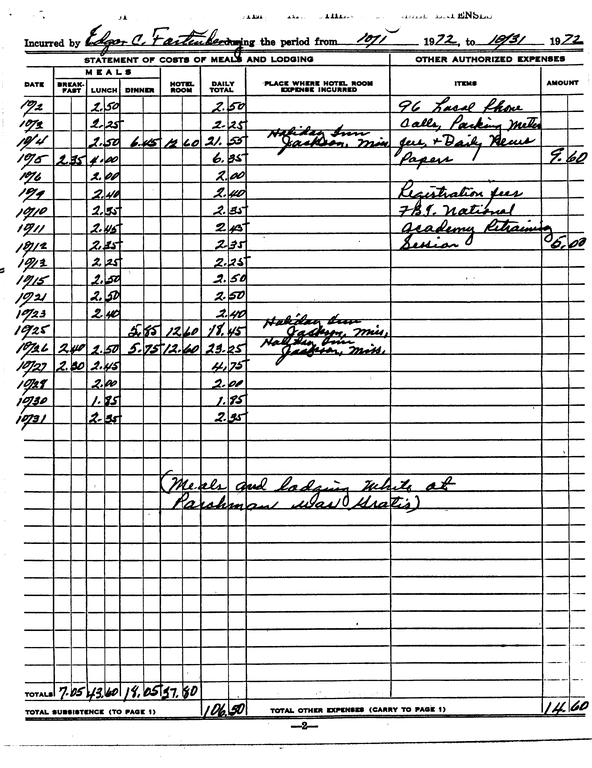 Incurred by Edgar C. Fortenberry during the period from 10/1 1972, to 10/31 1972
STATEMENT OF COSTS OF MEALS AND LODGING OTHER AUTHORIZED EXPENSES
MEALS
DATE BREAK-FAST LUNCH DINNER HOTEL ROOM DAILY TOTAL PLACE WHERE HOTEL ROOM EXPENSE INCURRED ITEMS AMOUNT
10/2 2.50 2.50 96 Local Phone
10/3 2.25 2.25 Calls, Parking Meter
10/4 2.50 6.45 12.60 21.55 Holiday Inn Jackson, Miss fees, + Daily News
10/5 2.35 4.00 6.35 Papers 9.60
10/6 2.00 2.00
10/9 2.40 2.40 Registration fees
10/10 2.35 2.35 FBI. National
10/11 2.45 2.45 academy Retraining
10/12 2.35 2.35 Session 5.00
10/13 2.25 2.25
10/15 2.50 2.50
10/21 2.50 2.50
10/23 2.40 2.40
10/25 5.85 12.60 18.45 Holiday Inn Jackson, Miss,
10/26 2.40 2.50 5.75 12.60 23.25 Holiday Inn Jackson, Miss.
10/27 2.30 2.45 4.75
10/28 2.00 2.00
10/30 1.85 1.85
10/31 2.35 2.35
(Meals and lodging while at
Parchman was Gratis)
TOTALS 7.05 43.60 18.05 37.80
TOTAL SUBSISTENCE (TO PAGE 1) 106.50 TOTAL OTHER EXPENSES (CARRY TO PAGE 1) 14.60
—2—